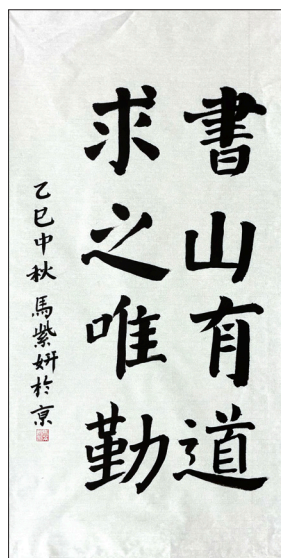 書山有道
求之唯勤
乙巳中秋馬紫妍於京